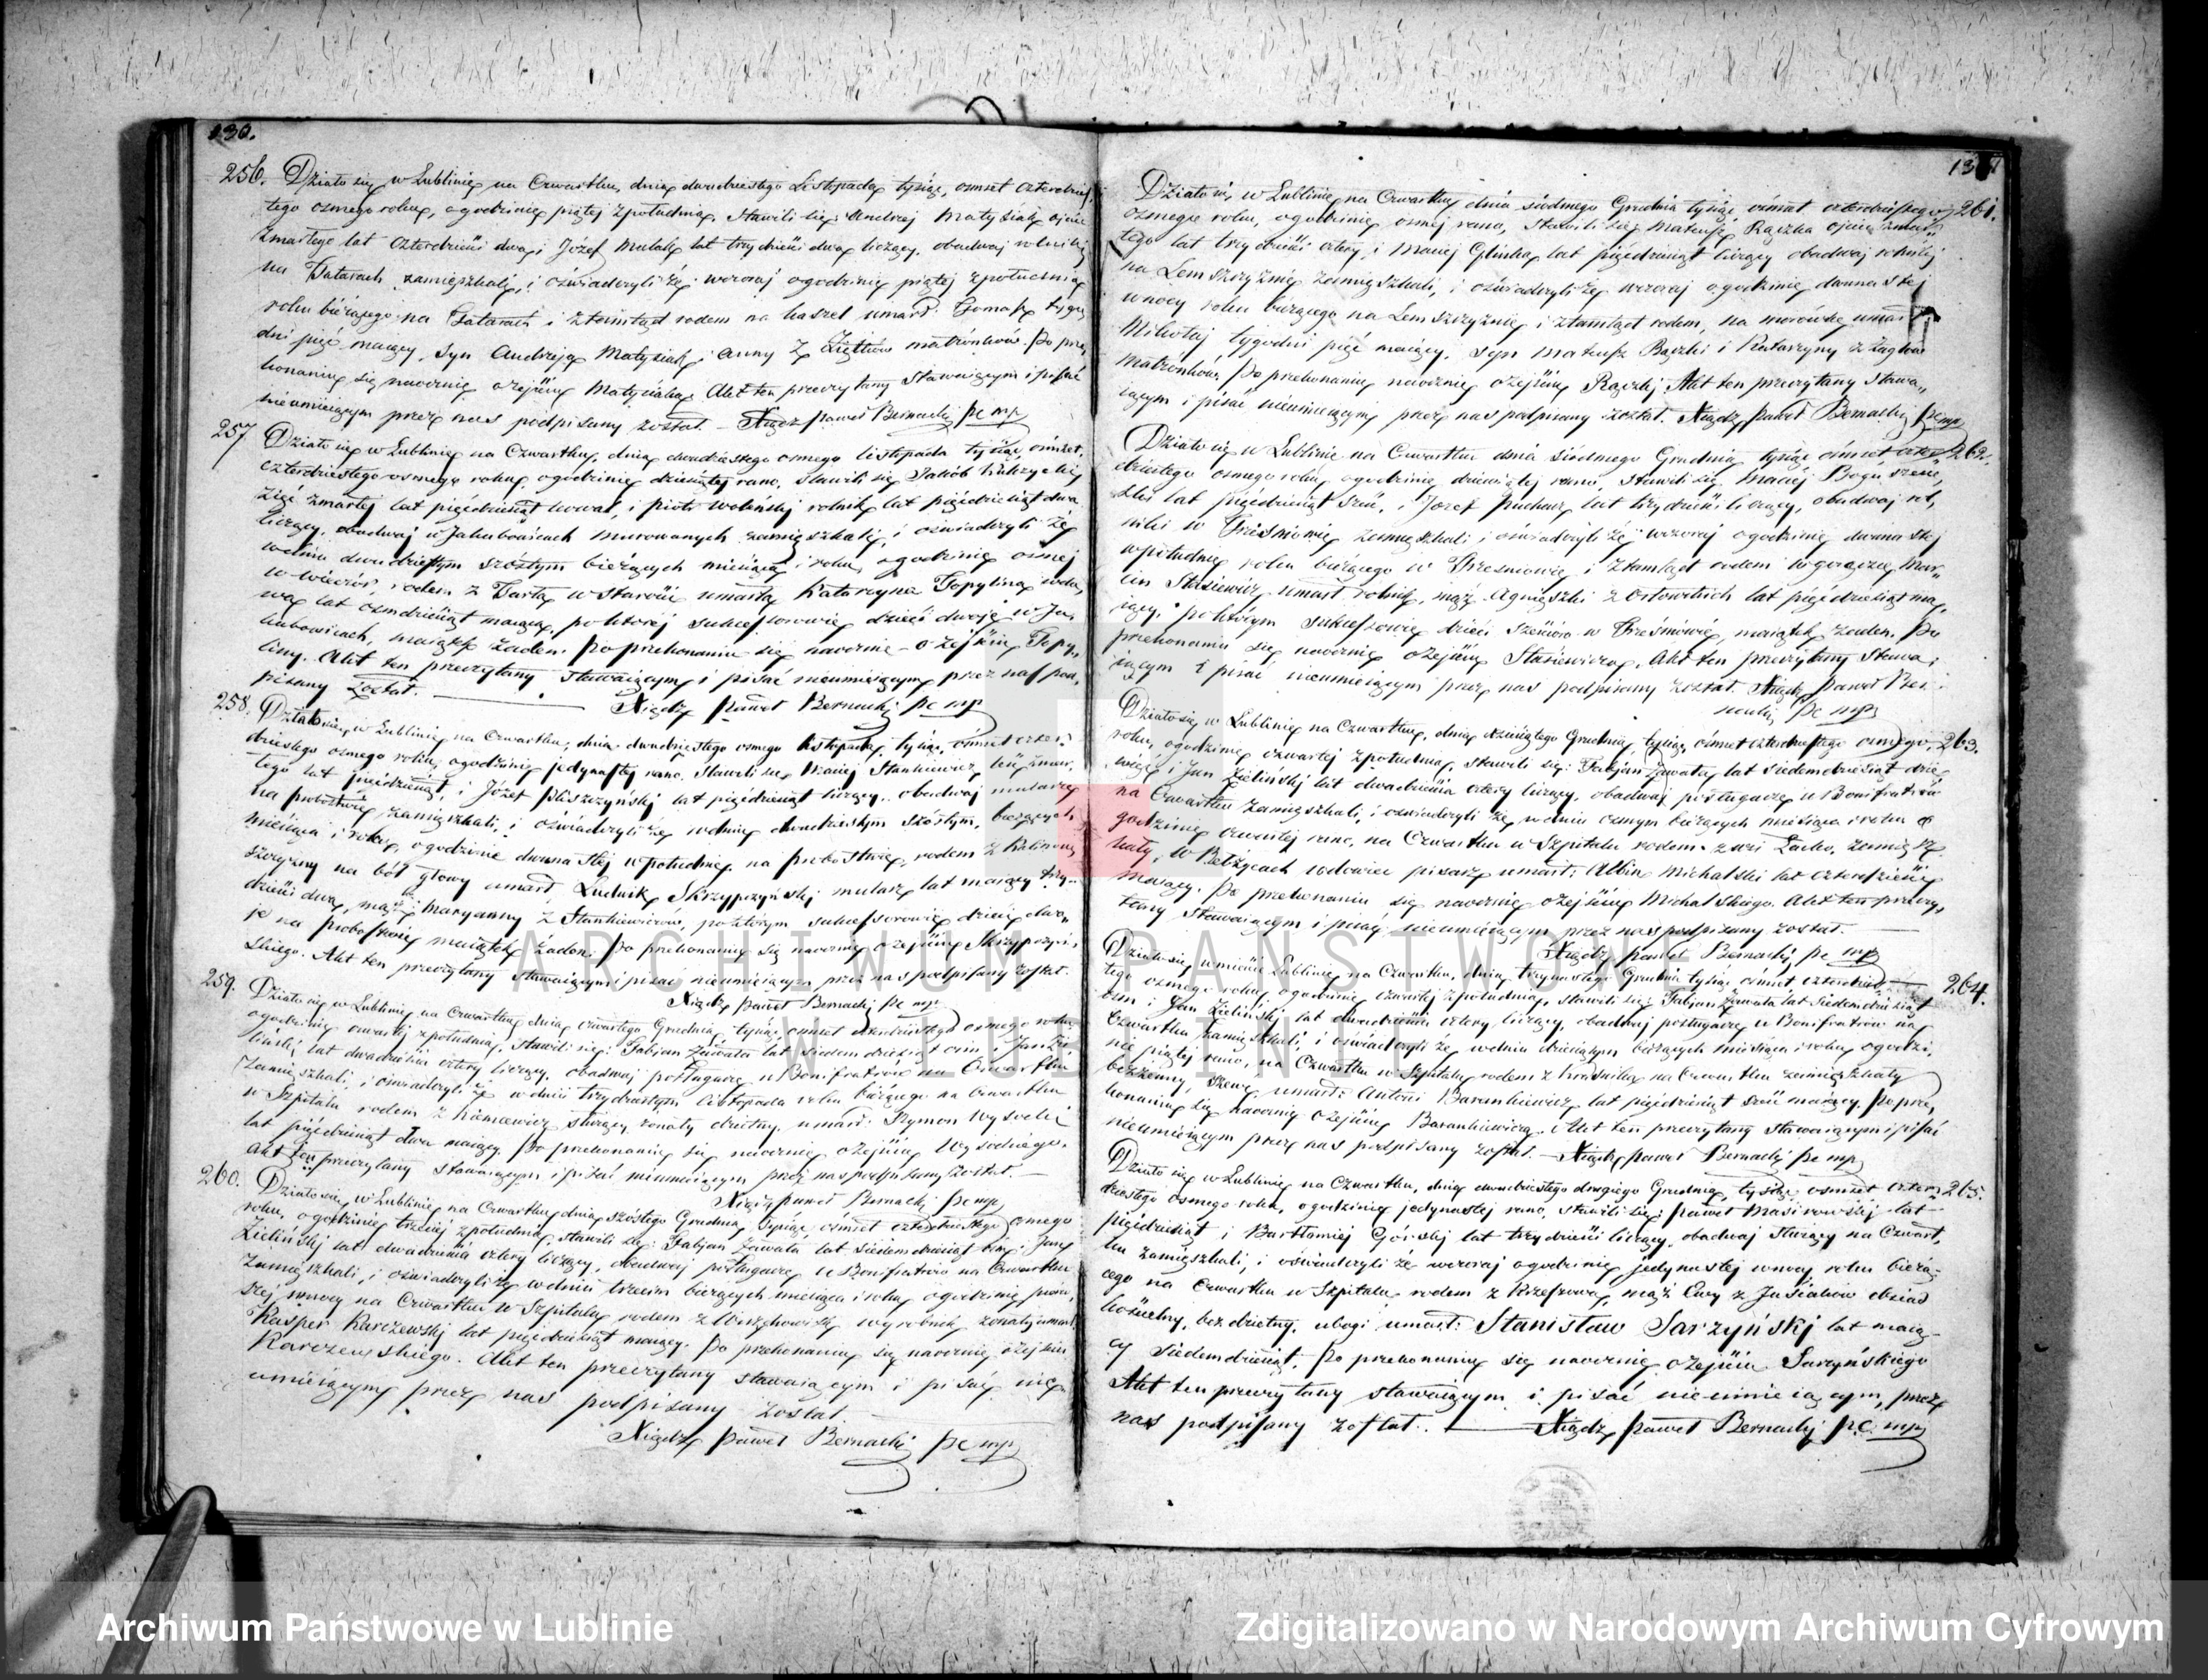 130.
256. Działo się w Lublinie na Czwartku, dnia dwudziestego Listopada tysiąc, osmset czterdzies
tego osmego roku, o godzinie piątej z południa, Stawili się: Andrzej Matysiak ojciec
Zmarłego lat czterdzieści dwa, i Józef lat trzydzieści dwa liczący, obadwaj rolnicy
na Tatarach zamięszkali, i oświadczyli że wczoraj o godzinie piątej z południa
roku bieżącego na Tatarach i ztamtąd rodem na kaszel umarł Tomasz tygo
dni pięć maiący, Syn Andrzeja Matysiak i Anny z małżonków. Po prze
konaniu się naocznie o zejściu Matysiaka, Akt ten przeczytany Stawaiącym i pisać
nieumieiącym przez nas podpisany został. – Xiądz Paweł Bernacki pc mp
257 Działo się w Lublinie na Czwartku, dnia dwudziestego osmego listopada tysiąc, osmset,
czterdziestego osmego roku, o godzinie dziesiątej rano, stawili się Jakób
Zięć zmarłej lat pięćdziesiąt i Piotr Woliński rolnik lat pięćdziesiąt dwa
liczący, obadwaj w Jakubowicach murowanych zamięszkali, i oświadczyli że
w dniu dwudziestym szóstym bieżących miesiąca i roku, o godzinie osmej
w wieczór, rodem z w starości umarła Katarzyna Topylina wdo
wa lat osmdziesiąt maiąca, po której sukcessorowie dzieci dwoje w Ja
kubowicach, maiątek żaden. Po przekonaniu się naocznie o zejściu Topy
liny. Akt ten przeczytany Stawaiącym i pisać nieumieiącym przez nas pod
pisany został. Xiądz Paweł Bernacki pc mp
258. Działo się w Lublinie na Czwartku, dnia dwudziestego osmego listopada, tysiąc, ośmset czter
dziestego osmego roku, o godzinie jedynastej rano. Stawili się Maciej Stankiewicz teść zmar
łego lat pięćdziesiąt, i Józef Pliszczyński lat pięćdziesiąt liczący, obadwaj mularze
na probostwie zamięszkali, i oświadczyli że w dniu dwudziestym szóstym, bieżących
miesiąca i roku, o godzinie dwunastej w południe, na probostwie, rodem z Kalinow
szczyzny na ból głowy umarł Ludwik Skrzypczyński mularz lat maiący trzy
dzieści dwa, mąż Maryanny z Stankiewiczów, po którym sukcessorowie dzieci dwo
je na probostwie maiątek żaden. Po przekonaniu się naocznie o zejściu Skrzypczyń
skiego. Akt ten przeczytany stawaiącym i pisać nieumieiącym przez nas podpisany został.
Xiądz Paweł Bernacki pc mp
259. Działo się w Lublinie na Czwartku dnia czwartego Grudnia, tysiąc, osmset czterdziestego osmego roku
o godzinie czwartej z południa, Stawili się: Fabjan Zawała lat siedemdziesiąt osm i Jan Zie
liński, lat dwadzieścia cztery liczący, obadwaj posługacze u Bonifratrów na Czwartku
Zamięszkali, i oświadczyli że w dniu trzydziestym listopada roku bieżącego na Czwartku
w Szpitalu rodem z Niemcewicz służący, żonaty, dzietny, umarł: Szymon Wysocki
lat pięćdziesiąt dwa maiący. Po przekonaniu się naocznie o zejściu Wysockiego.
Akt ten przeczytany stawaiącym i pisać nieumieiącym przez nas podpisany został. –
Xiądz Paweł Bernacki pc mp
260. Działo się w Lublinie na Czwartku, dnia szóstego Grudnia, tysiąc, ośmset czterdziestego osmego
roku, o godzinie trzeciej z południa, stawili się: Fabjan Zawała lat siedemdziesiąt osm i Jan
Zieliński lat dwadzieścia cztery liczący, obadwaj posługacze u Bonifratrów na Czwartku
zamięszkali, i oświadczyli że w dniu trzecim bieżących miesiąca i roku o godzinie pierw
szej w nocy na Czwartku w Szpitalu, rodem z wyrobnik, żonaty umarł
Kasper Karczewski lat pięćdziesiąt maiący. Po przekonaniu się naocznie o zejściu
Karczewskiego. Akt ten przeczytany stawaiącym i pisać nie
umieiącym przez nas podpisany został.
Xiądz Paweł Bernacki pc mp
131
Działo się, w Lublinie na Czwartku dnia siódmego Grudnia tysiąc, ośmset czterdziestego 261.
osmego roku, o godzinie osmej rano, Stawili się: Mateusz Rączka ojciec zmar
łego lat trzydzieści cztery, i Maciej Glinka lat pięćdziesiąt liczący obadwaj rolnicy
na Lemszczyznie zamięszkali, i oświadczyli że wczoraj o godzinie dwunastej
w nocy roku bieżącego na Lemszczyznie i ztamtąd rodem, na umarł
Mikołaj tygodni pięć maiący, syn Mateusza Rączki i Katarzyny z
małżonków. Po przekonaniu naocznie o zejściu Rączki. Akt ten przeczytany Stawa
iącym i pisać nieumieiącym przez nas podpisany został. Xiądz Paweł Bernacki pc mp
Działo się w Lublinie na Czwartku dnia siódmego Grudnia tysiąc ośmset czter 262.
dziestego osmego roku, o godzinie dziewiątej rano, stawili się, Maciej
lat pięćdziesiąt sześć, i Józef Puchacz lat trzydzieści liczący, obadwaj rol
nicy w Trześniowie zamięszkali i oświadczyli że wczoraj o godzinie dwunastej
w południe roku bieżącego w Trześniowie i ztamtąd rodem na gorączkę Mar
cin Stasiewicz umarł rolnik, mąż Agnieszki z Ostowskich lat pięćdziesiąt ma
iący, po którym sukcessorowie dzieci sześcioro w Trześniowie, maiątek żaden. Po
przekonaniu się naocznie o zejściu Stasiewicza. Akt ten przeczytany Stawa
iącym i pisać nieumieiącym przez nas podpisany został. Xiądz Paweł Ber
nacki pc mp
Działo się w Lublinie na Czwartku, dnia dziesiątego Grudnia, tysiąc, ośmset czterdziestego osmego 263.
roku, o godzinie czwartej z południa, stawili się: Fabjan Zawała, lat siedemdziesiąt
i Jan Zieliński lat dwadzieścia cztery liczący, obadwaj posługacze u Bonifratrów
na Czwartku zamięszkali, i oświadczyli że w dniu osmym bieżących miesiąca i roku o
godzinie czwartej rano, na Czwartku w Szpitalu rodem z wsi zamięsz
kały, w Bełżycach wdowiec pisarz umarł: Albin Michalski lat czterdzieści
maiący. Po przekonaniu się naocznie o zejściu Michalskiego. Akt ten przeczy
tany Stawaiącym i pisać nieumieiącym przez nas podpisany został.
Xiądz Paweł Bernacki, pc mp
Działo się w mieście Lublinie, na Czwartku, dnia trzynastego Grudnia tysiąc ośmset, czterdzies 264.
tego osmego roku, o godzinie czwartej z południa, stawili się: Fabjan Zawała lat siedemdziesiąt
osm i Jan Zieliński lat dwadzieścia cztery liczący, obadwaj posługacze u Bonifratrów na
Czwartku zamięszkali, i oświadczyli że, w dniu dziesiątym bieżących miesiąca i roku o godzi
nie piątej rano, na Czwartku w Szpitalu, rodem z Kraśnika na Czwartku zamięszkały
bezżenny, szewc umarł: Antoni Barankiewicz lat pięćdziesiąt sześć maiący. Po prze
konaniu się naocznie o zejściu Barankiewicza. Akt ten przeczytany stawaiącym i pisać
nieumieiącym przez nas podpisany został. – Xiądz Paweł Bernacki pc mp
Działo się w Lublinie na Czwartku, dnia dwudziestego drugiego Grudnia, tysiąc osmset czter 265.
dziestego osmego roku, o godzinie jedynastej rano, stawili się: Paweł lat
pięćdziesiąt, i Bartłomiej Górski lat trzydzieści liczący, obadwaj służący na Czwart
ku zamięszkali, i oświadczyli że wczoraj o godzinie jedynastej w nocy roku bieżą
cego na Czwartku w Szpitalu, rodem z Rzeszowa, mąż Ewy z Jusiaków dziad
kościelny, bezdzietny, ubogi umarł: Stanisław Sarzyński lat maią
cy siedemdziesiąt. Po przekonaniu się naocznie o zejściu Sarzyńskiego
Akt ten przeczytany stawaiącym i pisać nieumieiącym, przez
nas podpisany został. Xiądz Paweł Bernacki pc. mp
ARCHIWUM PAŃSTWOWE
W LUBLINIE
Archiwum Państwowe w Lublinie
Zdigitalizowano w Narodowym Archiwum Cyfrowym